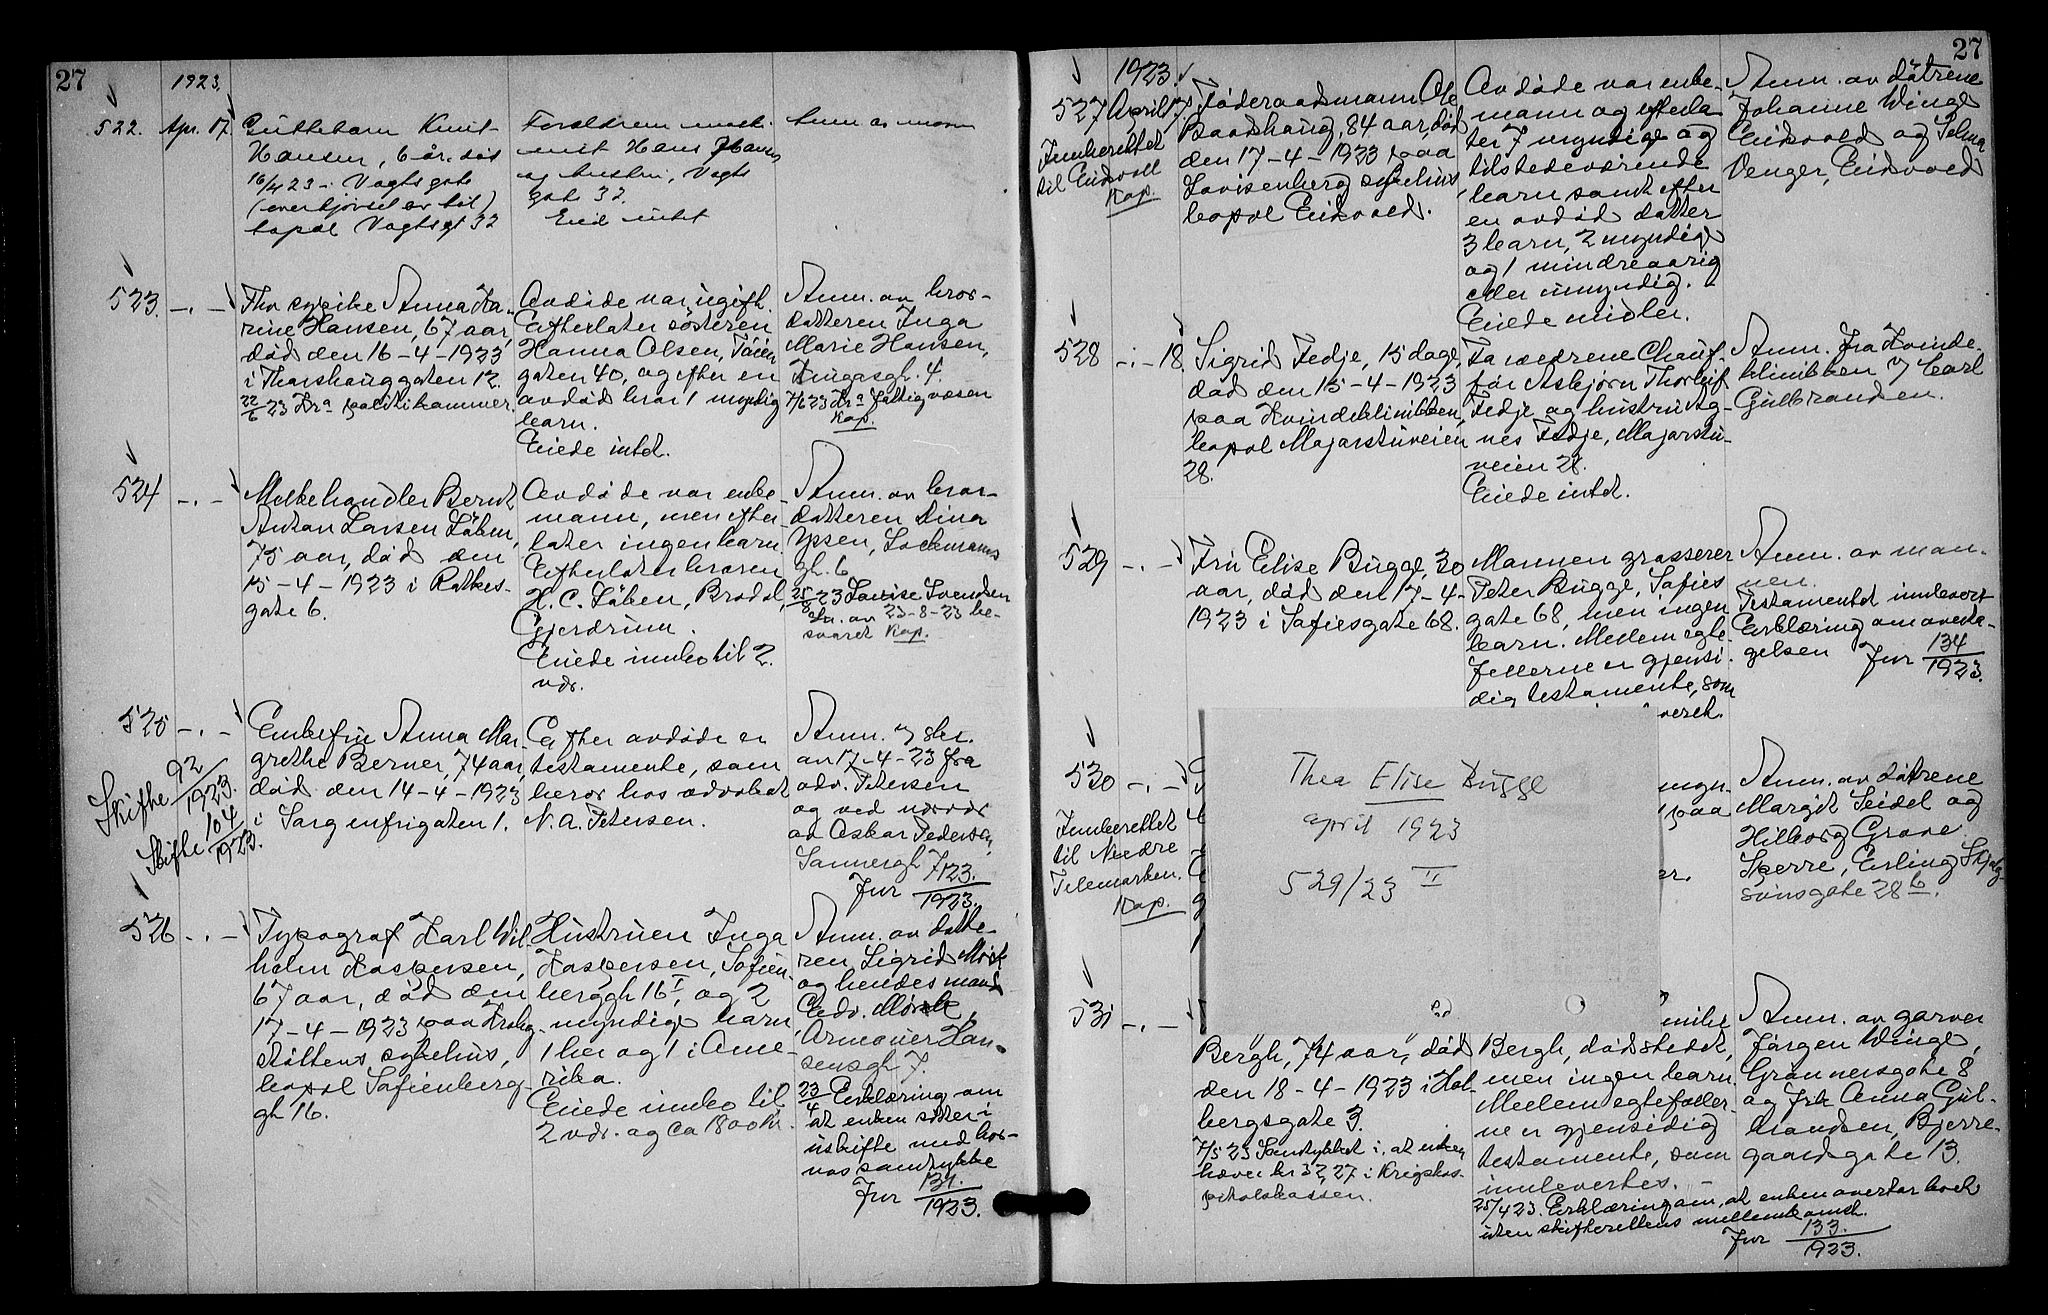 27
1923.
522. Apr. 17. Guttebarn Knut
Hansen, 6 år. død
16/4 23 i Vogts gate
(overkjørt av bil)
bopæl Vogtsgt 32
Forældrene
Hans Hansen
og hustru, Vogts
gate 32.
Eied intet
523. -.- Frk sypike Anna Ka-
rine Hansen, 67 aar,
død den 16-4-1923
i Thorshauggaten 12.
22/6 23 Kra politikammer.
Avdøde var ugift.
Efterlater søsteren
Hanna Olsen, Tøien
gaten 40, og efter en
avdød bror 1 myndig
barn.
Eiede intet.
Anm. av bror-
datteren Inga
Marie Hansen,
Krugersgt. 4.
7/6 23 Kra Fattigvæsen
Kop.
524 -.- Melkehandler Bernt
Anton Larsen Løben,
75 aar, død den
15-4-1923 i Ratkes-
gate 6.
Avdøde var enke-
mann, men efter-
later ingen barn.
Efterlater broren
H. C. Løben, Brodal,
Gjerdrum.
Eiede innbo til 2.
vdr.
Anm. av bror-
datteren Dina
Ypsen, Lockmanns
gt. 6
25/8 23 Lovise Svendsen
skr. av 23-8-23 be-
svaret Kop.
525 -.- Enkefru Anna Mar-
grethe Berner, 74 aar,
død den 14-4-1923
i Sorgenfrigaten 1.
Skifte 92/1923.
Skifte 104/1923.
Efter avdøde er
testamente, som
beror hos advokat
N. A. Petersen.
Anm. i skr.
av 17-4-23 fra
adv. Petersen
og ved nærvær
av Oskar Pedersen,
Sannergt 7
Jur 123./1923.
526 -.- Typograf Karl Wil-
helm Kaspersen,
67 aar, død den
17-4-1923 paa Krohg-
støttens sykehus,
bopæl Sofienberg-
gt 16.
Hustruen Inga
Kaspersen, Sofien-
berggt 16 I, og 2
myndige barn,
1 her og 1 i Ame-
rika.
Eiede innbo til
2 vdr. og ca 1800 kr.
Anm. av datte-
ren Sigrid Mørk
og hendes mand
Edv. Mørk,
Armauer Han-
sensgt 7.
23/4 Erklæring om
at enken sitter i
uskifte med bar-
nas samtykke
Jur 131./1923.
27
1923.
527 April 17. Føderaadsmann Ole
Baadshaug, 84 aar, død
den 17-4-1923 paa
Lovisenberg sykehus
bopæl Eidsvold.
Innberettet
til Eidsvoll
Kop.
Avdøde var enke-
mann og efterla-
ter 7 myndige og
tilstedeværende
barn samt efter
en avdød datter
3 barn, 2 myndige
og 1 mindreaarig
eller umyndig.
Eiede midler.
Anm. av døtrene
Johanne Winge
Eidsvold og Selma
Venger, Eidsvold
528 -.- 18. Sigrid Fedje, 15 dage,
død den 15-4-1923
paa Kvindeklinikken,
bopæl Majorstuveien
28.
Forældrene Chauf-
før Asbjørn Thorleif
Fedje og hustru Ag-
nes Fedje, Majorstu-
veien 28.
Eiede intet.
Anm. fra Kvinde-
klinikken v/ Carl
Gulbrandsen.
529 -.- Fru Elise Bugge, 30
aar, død den 17-4-
1923 i Sofiesgate 68.
Mannen grosserer
Peter Bugge, Sofies
gate 68, men ingen
barn. Mellem egte-
fellerne er gjensi-
dig testamente, som
Anm. av man-
nen.
Testamentet innlevert
Erklæring om overta-
gelsen Jur 134/1923.
530 -.-
Innberettet
til Nedre
Telemarken.
Kop.
Thea Elise Bugge
april 1923
529/23 II
myn-
paa
er.
Anm. av døtrene
Margit Seidel og
Hilborg Grave
Sperre, Erling Skjalg-
sønsgate 28 b.
531 -.-
Bergh, 74 aar, død
den 18-4-1923 i Hol-
bergsgate 3.
7/5 23 Samtykket i, at enken
hæver kr 3227 i Krigshos-
pitalskassen.
Bergh, dødstedet,
men ingen barn.
Mellem egtefeller-
ne er gjensidig
testamente, som
innlevertes.
25/4 23. Erklæring om, at enken overtar boet
uten skifterettens mellemkomst.
Jur 133./923.
Anm. av garver
Jørgen Winge,
Grønnersgate 8
og frk Anna Gul-
brandsen, Bjerre-
gaardsgate 13.